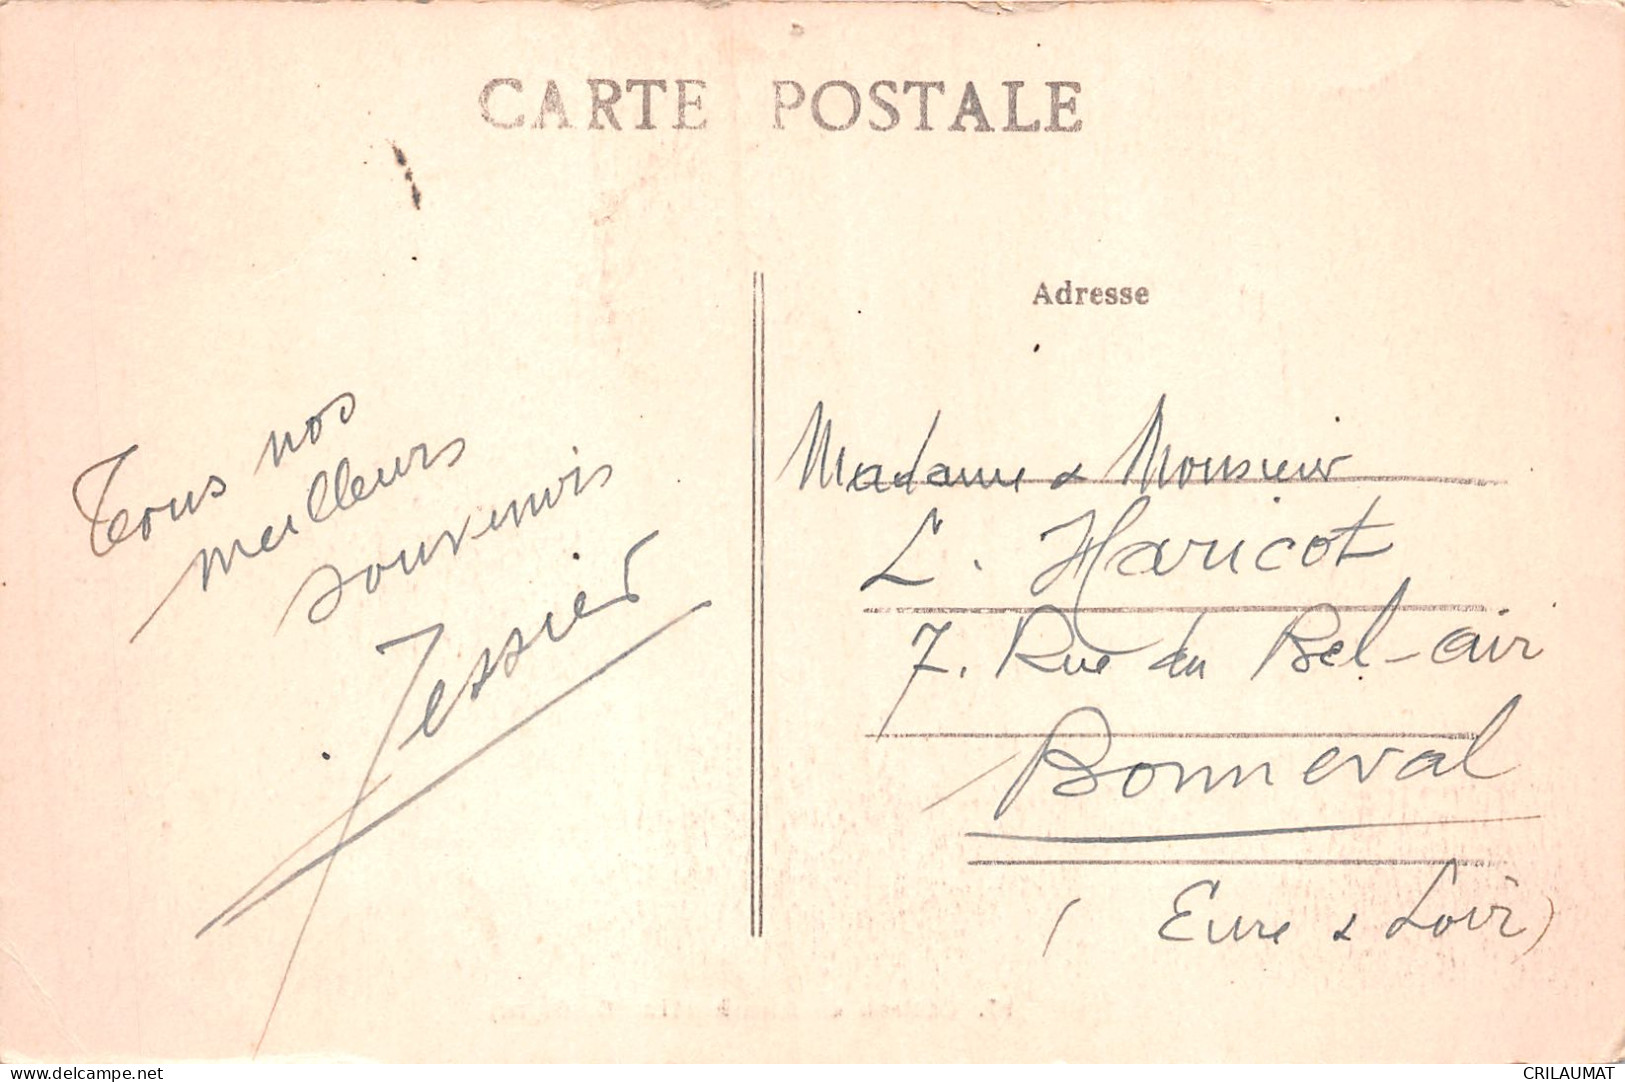 CARTE POSTALE
Adresse
Tous nos
meilleurs
souvenirs
Tessier
Madame & Monsieur
L. Haricot
7. Rue du Bel-air
Bonneval
( Eure & Loir)
www.delcampe.net
CRILAUMAT